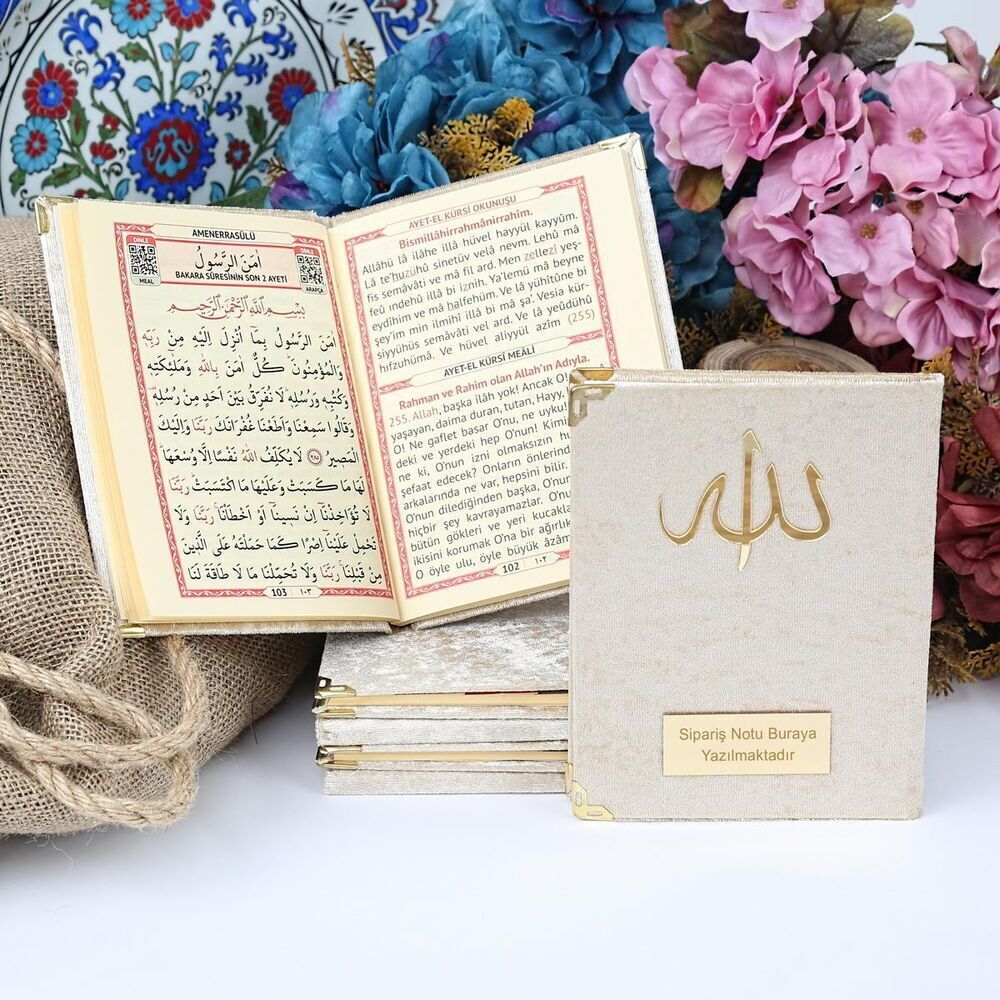 AMENERRASÛLÜ
DİNLE
MEAL
اٰمَنَ الرَّسُولُ
BAKARA SÛRESİNİN SON 2 AYETİ
DİNLE
ARAPÇA
بِسْمِ اللّٰهِ الرَّحْمٰنِ الرَّحِيمِ
اٰمَنَ الرَّسُولُ بِمَٓا اُنْزِلَ اِلَيْهِ مِنْ رَبِّهِ
وَالْمُؤْمِنُونَ كُلٌّ اٰمَنَ بِاللّٰهِ وَمَلٰٓئِكَتِهِ
وَكُتُبِهِ وَرُسُلِهِ لَا نُفَرِّقُ بَيْنَ اَحَدٍ مِنْ رُسُلِهِ
وَقَالُوا سَمِعْنَا وَاَطَعْنَا غُفْرَانَكَ رَبَّنَا وَاِلَيْكَ
الْمَصِيرُ ﴿٢٨٥﴾ لَا يُكَلِّفُ اللّٰهُ نَفْسًا اِلَّا وُسْعَهَا
لَهَا مَا كَسَبَتْ وَعَلَيْهَا مَا اكْتَسَبَتْ رَبَّنَا
لَا تُؤَاخِذْنَٓا اِنْ نَسِينَٓا اَوْ اَخْطَأْنَا رَبَّنَا وَلَا
تَحْمِلْ عَلَيْنَٓا اِصْرًا كَمَا حَمَلْتَهُ عَلَى الَّذِينَ
مِنْ قَبْلِنَا رَبَّنَا وَلَا تُحَمِّلْنَا مَا لَا طَاقَةَ لَنَا
103 ١٠٣
AYET-EL KÜRSİ OKUNUŞU
Bismillâhirrahmânirrahim.
Allâhü lâ ilâhe illâ hüvel hayyül kayyûm.
Lâ te'huzühü sinetüv velâ nevm. Lehû mâ
fis semâvâti ve mâ fil ard. Men zellezi yeş-
feû ındehû illâ bi iznih. Ya'lemü mâ beyne
eydîhim ve mâ halfehüm. Ve lâ yühîtûne bi
şey'im min ilmihî illâ bi mâ şa'. Vesia kür-
siyyühüs semâvâti vel ard. Ve lâ yeûdühû
hıfzuhümâ. Ve hüvel aliyyül azîm (255)
AYET-EL KÜRSİ MEALİ
Rahman ve Rahim olan Allah'ın Adıyla.
255. Allah, başka ilâh yok! Ancak O'
yaşayan, daima duran, tutan, Hayy,
O! Ne gaflet basar O'nu, ne uykul
deki ve yerdeki hep O'nun! Kimi
ne ki, O'nun izni olmaksızın hu
şefaat edecek? Onların önlerind
arkalarında ne var, hepsini bilir.
O'nun dilediğinden başka, O'nun
hiçbir şey kavrayamazlar. O'nu
bütün gökleri ve yeri kucakla
ikisini korumak O'na bir ağırlık
O öyle ulu, öyle büyük âzâm
102 ١٠٢
الله
Sipariş Notu Buraya
Yazılmaktadır